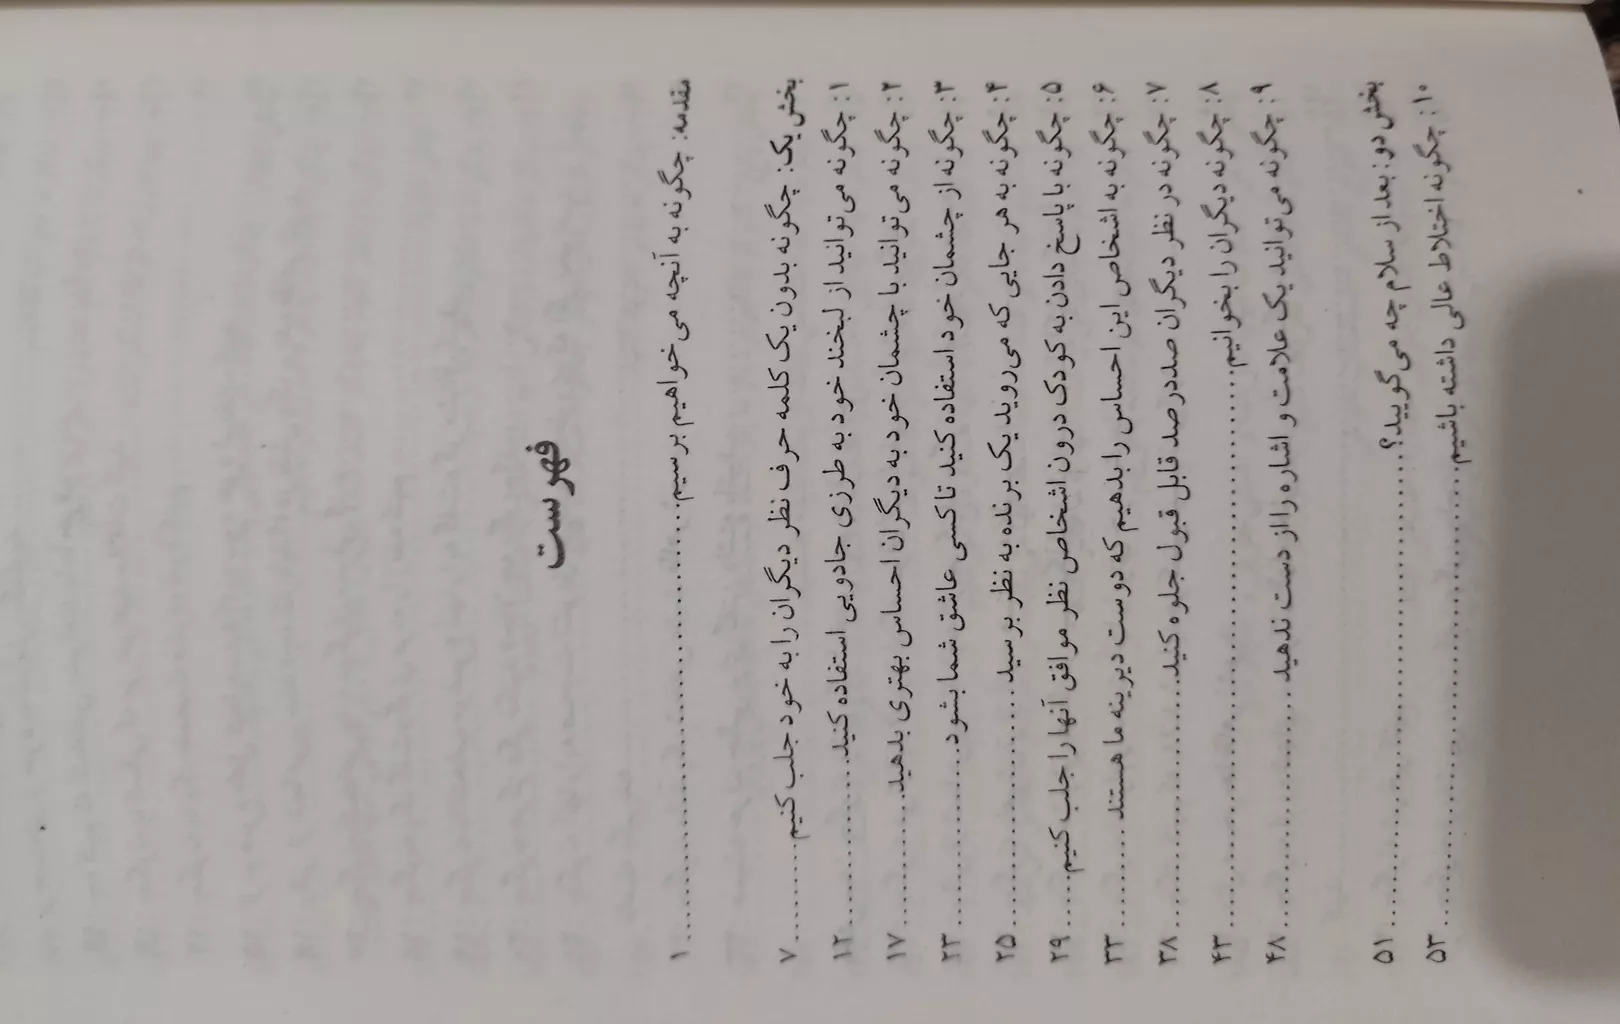 فهرست
مقدمه: چگونه به آنچه می‌خواهیم برسیم........................................۱
بخش یک: چگونه بدون یک کلمه حرف نظر دیگران را به خود جلب کنیم.........۷
۱: چگونه می‌توانید از لبخند خود به طرزی جادویی استفاده کنید................۱۲
۲: چگونه می‌توانید با چشمان خود به دیگران احساس بهتری بدهید............۱۷
۳: چگونه از چشمان خود استفاده کنید تا کسی عاشق شما بشود................۲۳
۴: چگونه به هر جایی که می‌روید یک برنده به نظر برسید......................۲۵
۵: چگونه با پاسخ دادن به کودک درون اشخاص نظر موافق آنها را جلب کنیم.....۲۹
۶: چگونه به اشخاص این احساس را بدهیم که دوست دیرینه ما هستند.........۳۳
۷: چگونه در نظر دیگران صددرصد قابل قبول جلوه کنید........................۳۸
۸: چگونه دیگران را بخوانیم....................................................۴۳
۹: چگونه می‌توانید یک علامت و اشاره را از دست ندهید......................۴۸
بخش دو: بعد از سلام چه می‌گویید؟............................................۵۱
۱۰: چگونه اختلاط عالی داشته باشیم............................................۵۳